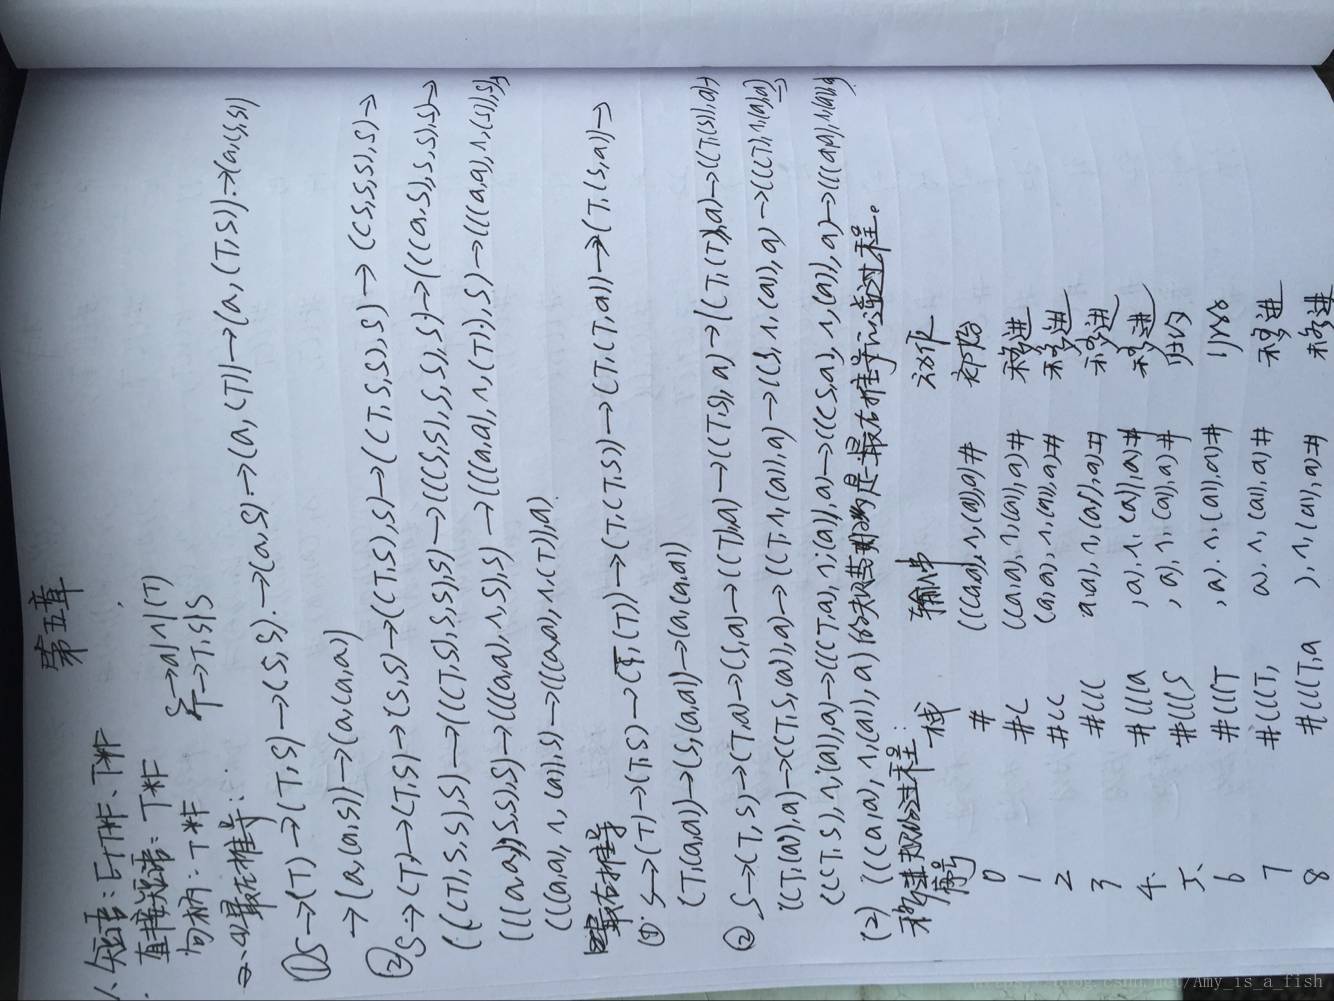 第五章
1、短语: E+T*F、T*F
直接短语: T*F
句柄: T*F
S→a|∧|(T)
T→T,S|S
2、(1)最左推导:
①S→(T)→(T,S)→(S,S)→(a,S)→(a,(T))→(a,(T,S))→(a,(S,S))
→(a,(a,S))→(a,(a,a))
②S→(T)→(T,S)→(S,S)→((T),S)→((T,S),S)→((T,S,S),S)→((S,S,S),S)→
(((T),S,S),S)→(((T,S),S,S),S)→(((S,S),S,S),S)→(((a,S),S,S),S)→
(((a,a),S,S),S)→(((a,a),∧,S),S)→(((a,a),∧,(T)),S)→(((a,a),∧,(S)),S)→
(((a,a),∧,(a)),S)→(((a,a),∧,(a)),a)
最右推导
① S→(T)→(T,S)→(T,(T))→(T,(T,S))→(T,(T,a))→(T,(S,a))→
(T,(a,a))→(S,(a,a))→(a,(a,a))
② S→(T,S)→(T,a)→(S,a)→((T),a)→((T,S),a)→((T,(T)),a)→((T,(S)),a)→
((T,(a)),a)→((T,S,(a)),a)→((T,∧,(a)),a)→((S,∧,(a)),a)→(((T),∧,(a)),a)→
(((T,S),∧,(a)),a)→(((T,a),∧,(a)),a)→(((S,a),∧,(a)),a)→(((a,a),∧,(a)),a)
(2) (((a,a),∧,(a)),a)的规范归约是最右推导的逆过程。
移进规约过程:
序号 栈 输入串 动作
0 # (((a,a),∧,(a)),a)# 初始
1 #( ((a,a),∧,(a)),a)# 移进
2 #(( (a,a),∧,(a)),a)# 移进
3 #((( a,a),∧,(a)),a)# 移进
4 #(((a ,a),∧,(a)),a)# 移进
5 #(((S ,a),∧,(a)),a)# 归约
6 #(((T ,a),∧,(a)),a)# 归约
7 #(((T, a),∧,(a)),a)# 移进
8 #(((T,a ),∧,(a)),a)# 移进
https://blog.csdn.net/Amy_is_a_fish